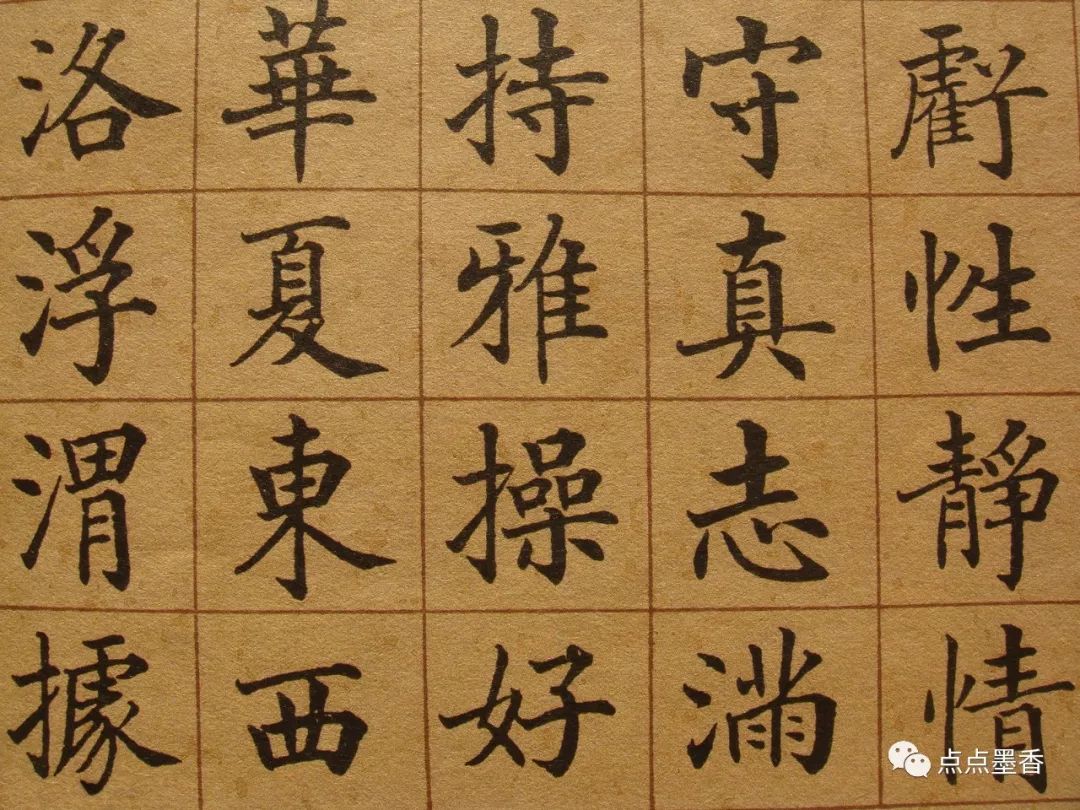 虧性靜情
守真志滿
持雅操好
華夏東西
洛浮渭據
点点墨香